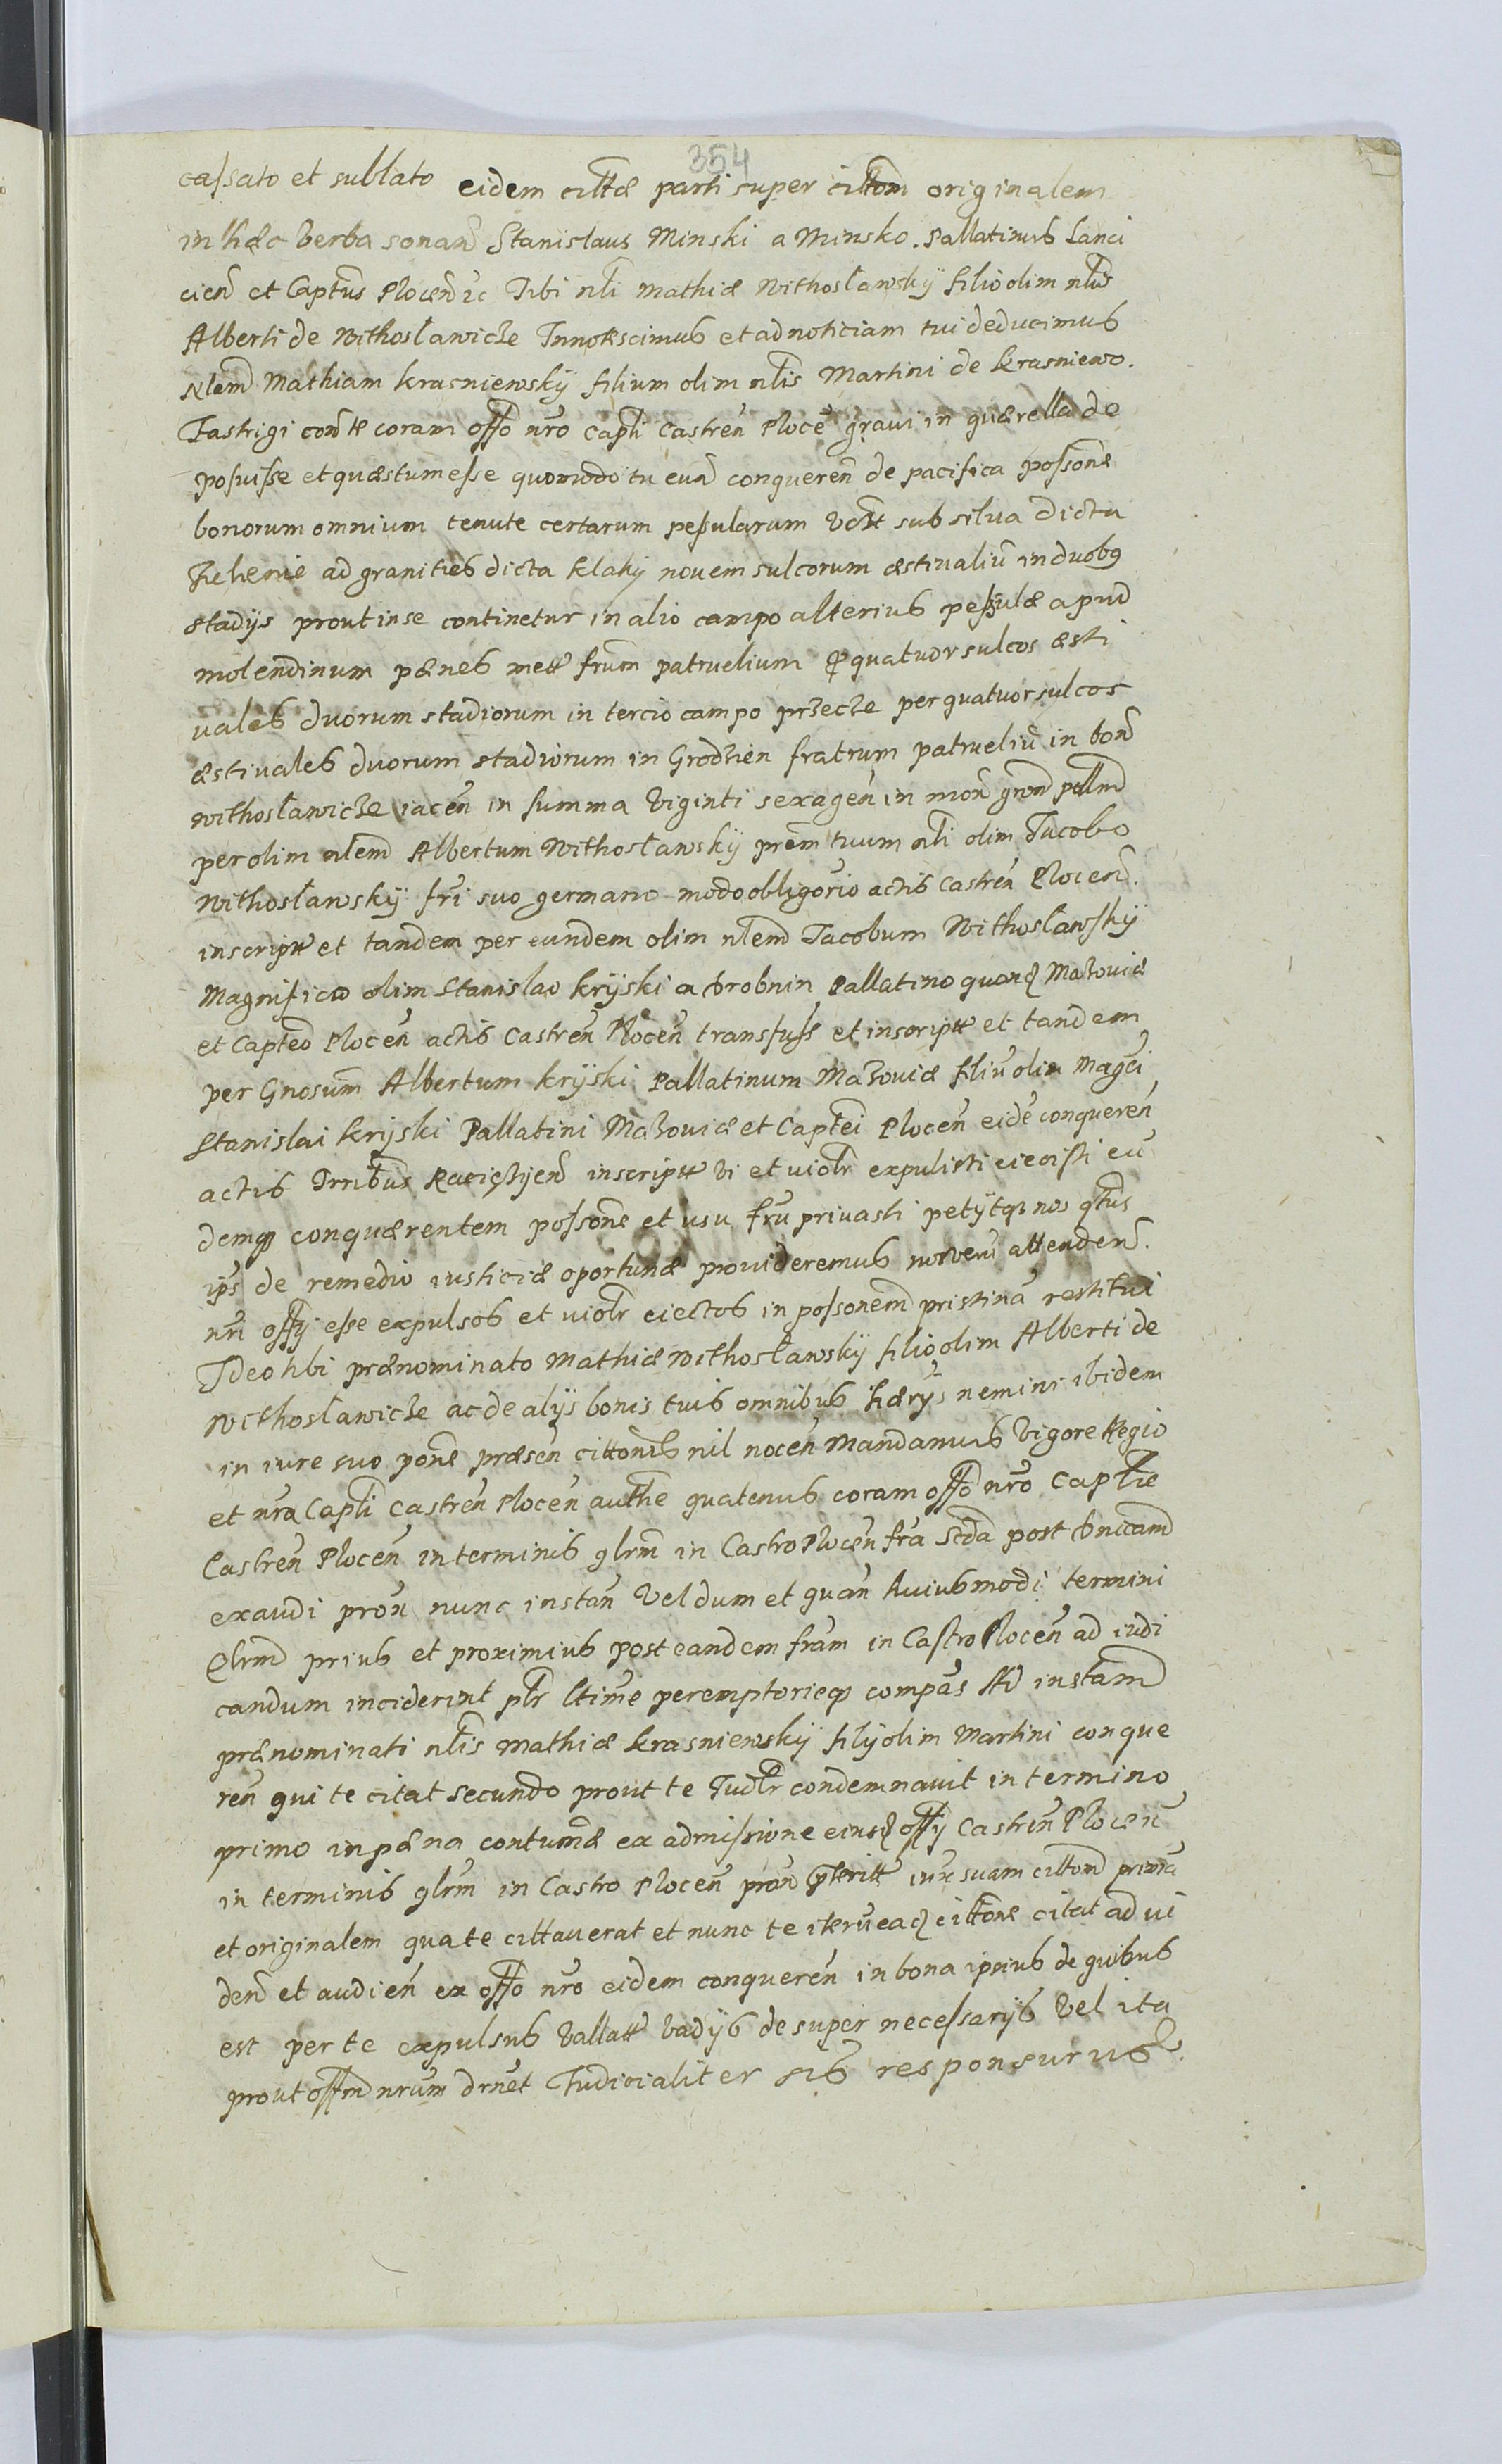 354
cassato et sublato eidem cittæ parti super cittom originalem
in hæc verba sonan Stanislaus Minski a Minsko. Pallatinus Lanci
cien et Captus Plocen ic Tibi nli Mathiæ Nithosławskÿ filio olim nlis
Alberti de Nithosławicze Innotescimus et ad noticiam tui deducimus
Nlem Mathiam Krasniewskÿ filium olim nlis Martini de Krasniewo.
Jastrigi conte coram offo nro Capli Castren Ploce graui in quærella de
posuisse et quæstum esse quomodo tu eun conqueren de pacifica possone
bonorum omnium tenute certarum pessularum vdtt sub silua dicta
ad granities dicta Klaky nouem sulcorum æstiualiu in duobq
stadys prout in se continetur in alio campo alterius pessulæ apud
molendinum pænes mett frum patruelium p quatuor sulcos æsti
uales duorum stadiorum in tercio campo przecze per quatuor sulcos
æstiuales duorum stadiorum in Grodzien fratrum patrueliu in bon
Nithosławicze iacen in summa viginti sexagen in mon
per olim nlem Albertum Nithosławskÿ prem tuum nli olim Jacobo
Nithosławskÿ fri suo germano modo obligorio actis Castren Plocen.
inscriptt et tandem per eundem olim nlem Jacobum Nithosławskÿ
Magnifico olim Stanislao Krÿski a Drobnin Pallatino quonq Mazouiæ
et Capteo Plocen actis Castren Plocen transfuss et inscriptt et tandem
per Gnosum Albertum Krÿski Pallatinum Mazouiæ filiu olim Magci
Stanislai Krÿski Pallatini Mazouiæ et Captei Plocen eide conqueren
actis Trribus inscriptt vi et violr expulisti eiecisti eu
demqz conquærentem possone et usu fru priuasti petÿtqz nos qtus
ips de remedio iusticiæ oportunæ prouideremus attenden.
nri offÿ esse expulsos et violr eiectos in possonem pristina restitui
Ideo tibi prænominato Mathiæ Nithosławskÿ filio olim Alberti de
Nithosławicze ac de alÿs bonis tuis omnibus hærÿs nemini ibidem
in iure suo pone præsen cittonis nil nocen Mandamus vigore Regio
et nra Capli Castren Plocen authe quatenus coram offo nro Caplie
Castren Plocen in terminis qlrm in Castro Plocen fra Scda post Dnicam
exaudi pron nunc instan vel dum et quan huiusmodi termini
Qlrm prius et proximius post eandem fram in Castro Plocen ad iudi
candum inciderint ptr peremptorieqz compas Ad instam
prænominati nlis Mathiæ Krasniewskÿ filÿ olim Martini conque
ren qui te citat secundo prout te Iudlr condemnauit in termino
primo in pæna contumæ ex admissione eiusq offÿ Castren Plocen
in terminis qlrm in Castro Plocen pran iux suam cittom prima
et originalem qua te cittauerat et nunc te iteru eaq cittone citat ad ui
den et audien ex offo nro eidem conqueren in bona ipsius de quibus
est per te expulsus vallatt vadÿs de super necessarÿs vel ita
prout offm nrum drnet Iudicialiter sis responsurus.